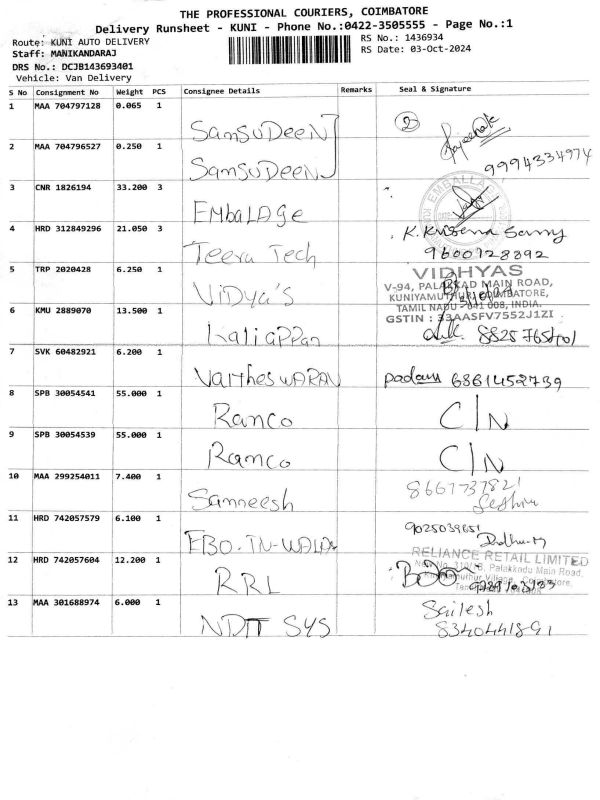 THE PROFESSIONAL COURIERS, COIMBATORE
Delivery Runsheet - KUNI - Phone No.:0422-3505555 - Page No.:1
Route: KUNI AUTO DELIVERY
Staff: MANIKANDARAJ
DRS No.: DCJB143693401
Vehicle: Van Delivery
RS No.: 1436934
RS Date: 03-Oct-2024
S No Consignment No Weight PCS Consignee Details Remarks Seal & Signature
1 MAA 704797128 0.065 1 SamSuDeeN 2
2 MAA 704796527 0.250 1 SamSuDeeN 9994334974
3 CNR 1826194 33.200 3 EmbaLAGe
4 HRD 312849296 21.050 3 Teera Tech K. Krisena Samy 9600128892
5 TRP 2020428 6.250 1 ViDya's
VIDHYAS
V-94, PALAKKAD MAIN ROAD,
KUNIYAMUTHUR, COIMBATORE,
TAMIL NADU - 641 008, INDIA.
GSTIN : 33AASFV7552J1ZI
6 KMU 2889070 13.500 1 kaliappan
7 SVK 60482921 6.200 1 Vartheswaran 6861452739
8 SPB 30054541 55.000 1 Ramco C/N
9 SPB 30054539 55.000 1 Ramco C/N
10 MAA 299254011 7.400 1 Sanneesh 8667737821
11 HRD 742057579 6.100 1 EBO-TN- 9025039651
12 HRD 742057604 12.200 1 RRL
RELIANCE RETAIL LIMITED
Palakkadu Main Road,
13 MAA 301688974 6.000 1 NDT SYS Sailesh
8340441891